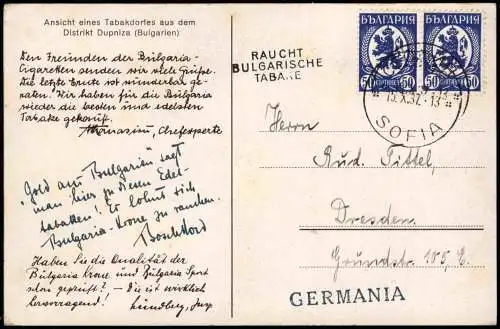 Ansicht eines Tabakdorfes aus dem
Distrikt Dupniza (Bulgarien)
Den Freunden der Bulgaria-
Cigaretten senden wir viele Grüße.
Die letzte Ernte ist wunderbar ge-
raten. Wir haben für die Bulgaria
wieder die besten und edelsten
Tabake gekauft.
Chefexperte
"Gold aus Bulgarien" sagt
man hier zu diesen Edel-
tabaken! Es lohnt sich
Bulgaria-Krone zu rauchen.
Haben Sie die Qualität der
Bulgaria Krone und Bulgaria Sport
schon geprüft? – Sie ist wirklich
hervorragend!
RAUCHT
BULGARISCHE
TABAKE
БЪЛГАРИЯ БЪЛГАРИЯ
50 50 50
15.X.37.-13
SOFIA
Herrn
Rud. Pittel,
Dresden
Grundstr. 105,
GERMANIA